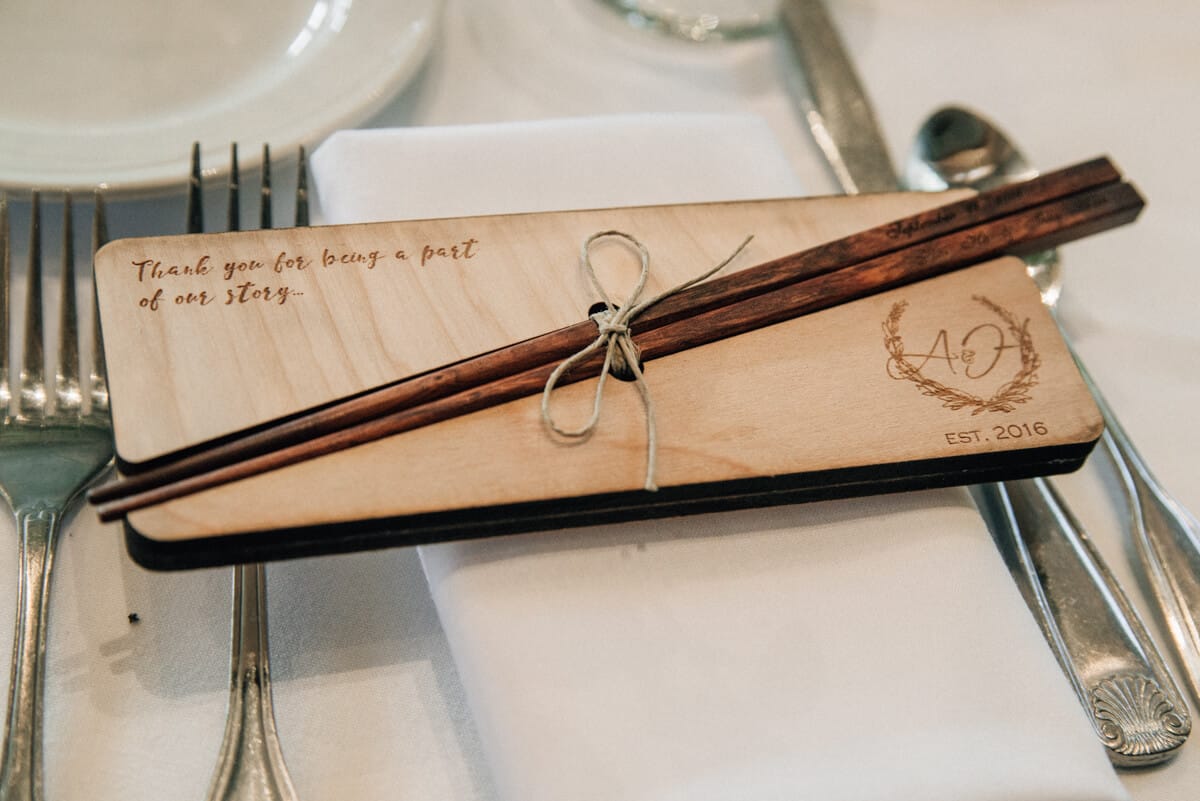 Thank you for being a part
of our story...
September
A & J
EST. 2016